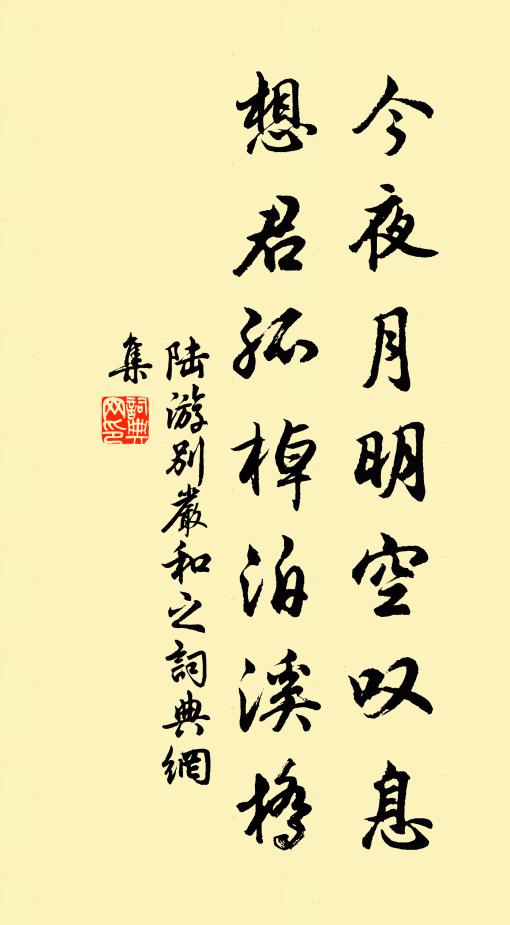 今夜月明空叹息
想君孤棹泊溪橋
陆游别嚴和之詞典網
集
詞典
网印